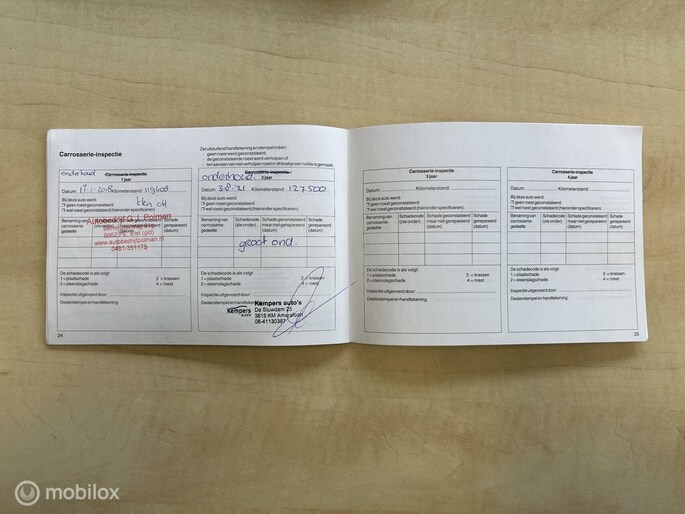 Carrosserie-inspectie
Zet uitsluitend handtekening en stempel indien:
- geen roest werd geconstateerd,
- de geconstateerde roest werd verholpen of
onderhoud
Carrosserie-inspectie
1 jaar
Datum: Kilometerstand: 119408
Bij deze auto werd: klein
❒ geen roest geconstateerd
❒ wel roest geconstateerd (hieronder specificeren).
Autobedrijf G.J. Polman
www.autobedrijfpolman.nl
0481-351175
Benaming van carrosserie-gedeelte
Schade gerepareerd (datum)
De schadecode is als volgt:
1 = plaatschade 3 = krassen
2 = steenslagschade 4 = roest
Inspectie uitgevoerd door:
Dealerstempel en handtekening:
24
onderhoud
Carrosserie-inspectie
2 jaar
Datum: 3-8-'21 Kilometerstand: 127500
Bij deze auto werd:
❒ geen roest geconstateerd
❒ wel roest geconstateerd (hieronder specificeren).
Benaming van carrosserie-gedeelte
Schadecode (zie onder)
Schade geconstateerd maar niet gerepareerd (datum)
Schade gerepareerd (datum)
groot ond.
De schadecode is als volgt:
1 = plaatschade 3 = krassen
2 = steenslagschade 4 = roest
Inspectie uitgevoerd door:
Dealerstempel en handtekening:
Kempers
AUTO'S
Kempers auto's
De Stuwdam 25
3815 KM Amersfoort
06-41130387
Carrosserie-inspectie
3 jaar
Datum: Kilometerstand:
Bij deze auto werd:
❒ geen roest geconstateerd
❒ wel roest geconstateerd (hieronder specificeren).
Benaming van carrosserie-gedeelte
Schadecode (zie onder)
Schade geconstateerd maar niet gerepareerd (datum)
Schade gerepareerd (datum)
De schadecode is als volgt:
1 = plaatschade 3 = krassen
2 = steenslagschade 4 = roest
Inspectie uitgevoerd door:
Dealerstempel en handtekening:
Carrosserie-inspectie
4 jaar
Datum: Kilometerstand:
Bij deze auto werd:
❒ geen roest geconstateerd
❒ wel roest geconstateerd (hieronder specificeren).
Benaming van carrosserie-gedeelte
Schadecode (zie onder)
Schade geconstateerd maar niet gerepareerd (datum)
Schade gerepareerd (datum)
De schadecode is als volgt:
1 = plaatschade 3 = krassen
2 = steenslagschade 4 = roest
Inspectie uitgevoerd door:
Dealerstempel en handtekening:
25
mobilox